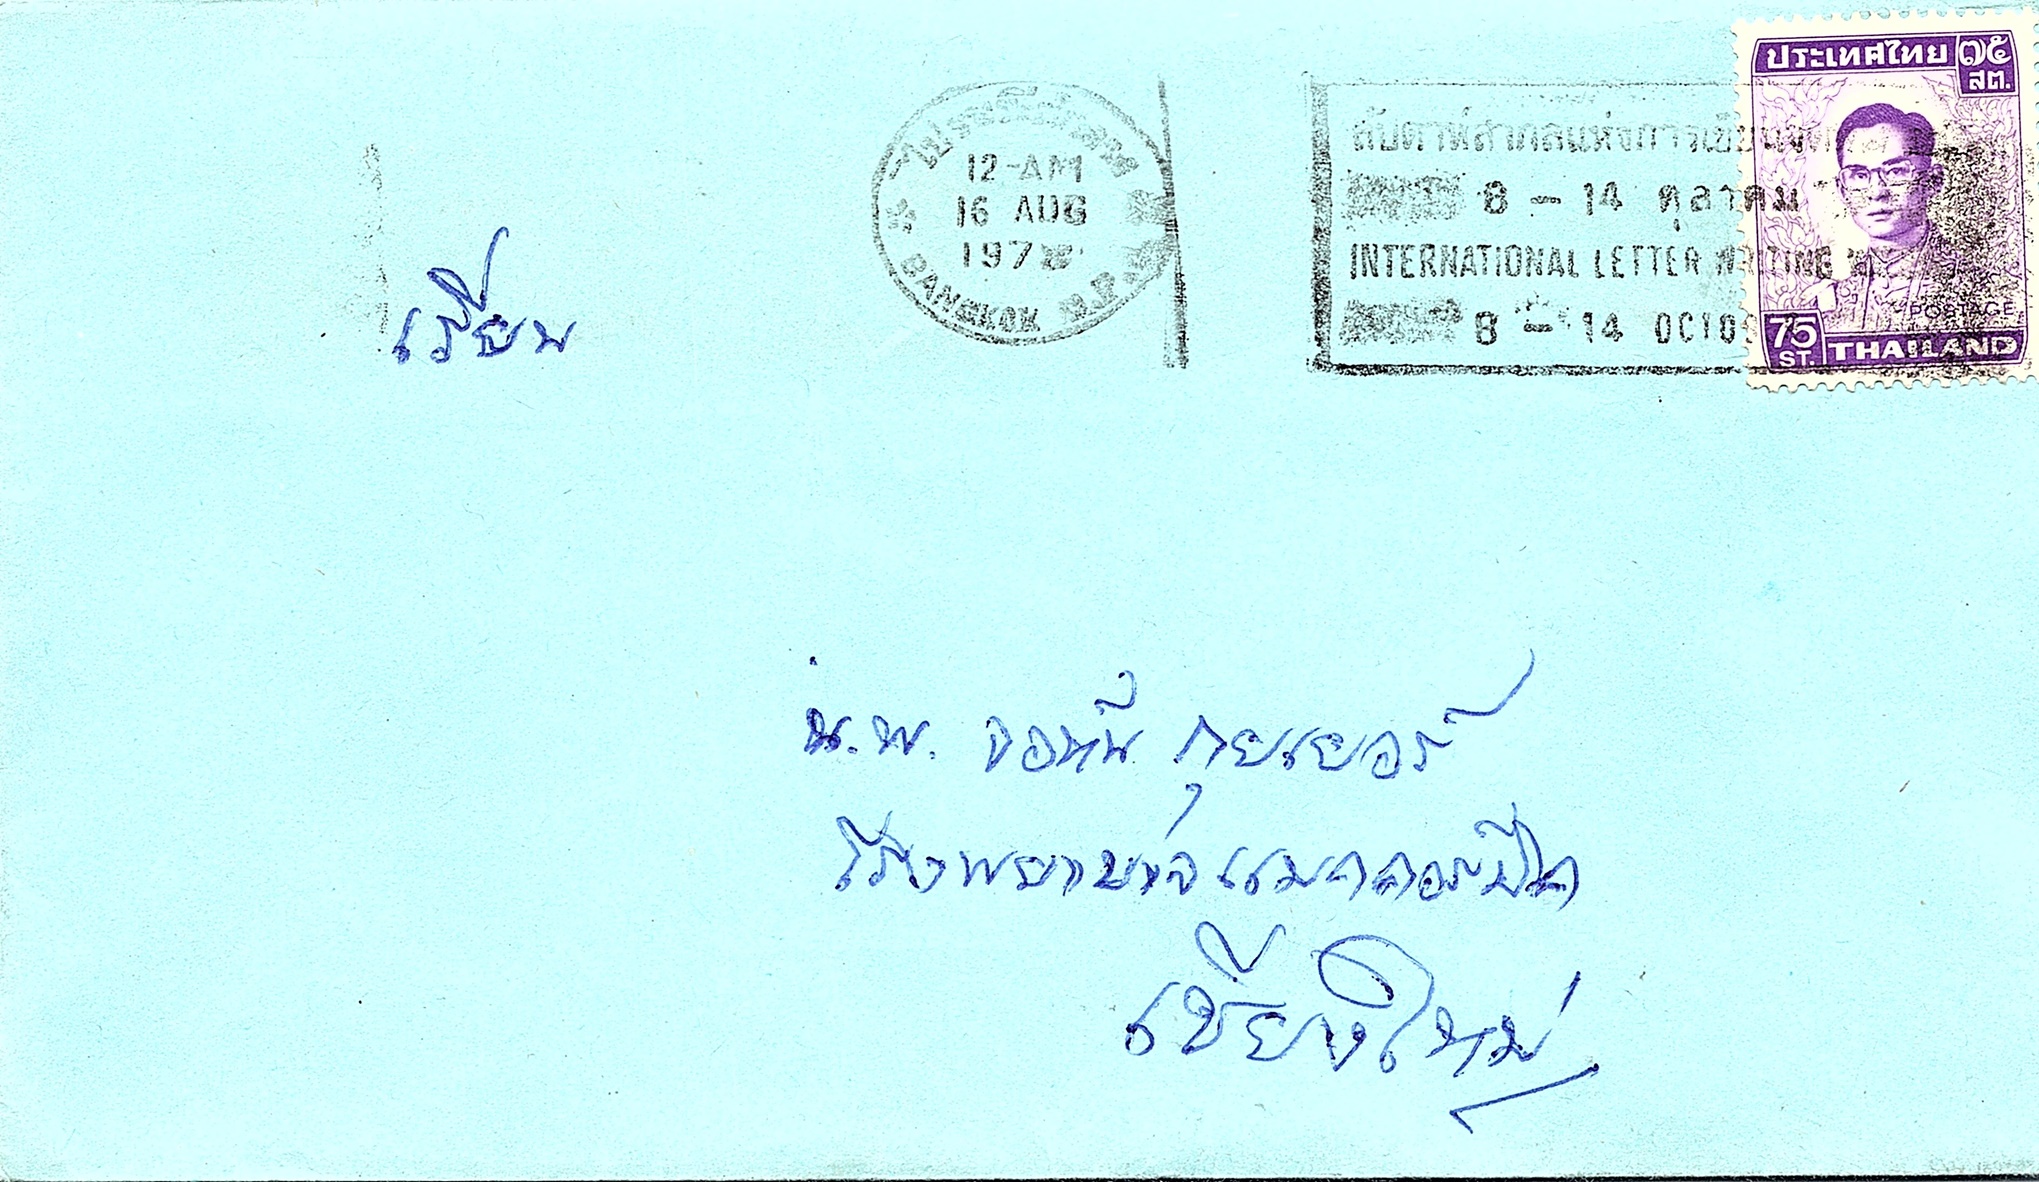 ประเทศไทย ๗๕ สต.
ไปรษณีย์
12-AM
16 AUG
197
BANGKOK
สัปดาห์สากลแห่งการเขียน
8 - 14 ตุลาคม
INTERNATIONAL LETTER WRITING
8 - 14 OCTOB
POSTAGE
75 ST. THAILAND
เรียน
น.พ. จอห์น กุยเยอร์
โรงพยาบาลแมคคอร์มิค
เชียงใหม่